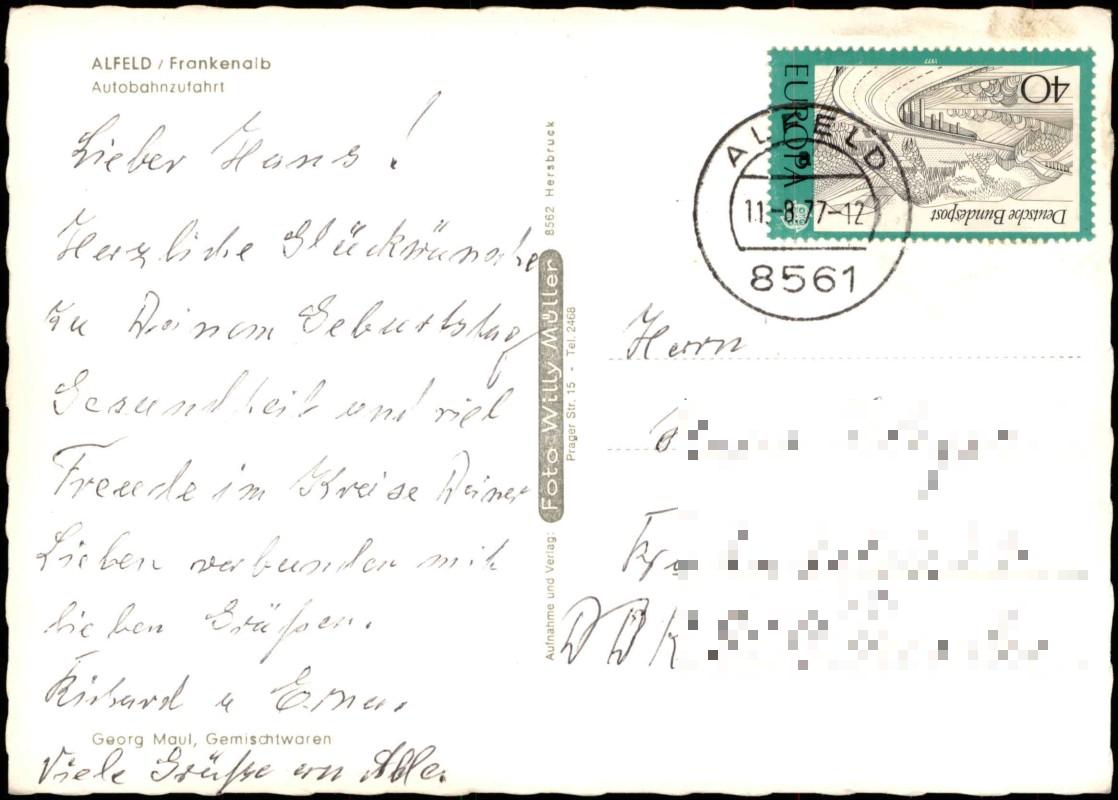 ALFELD / Frankenalb
Autobahnzufahrt
Lieber Hans!
Herzliche Glückwünsche
zu Deinem Geburtstag
Gesundheit und viel
Freude im Kreise Deiner
Lieben verbunden mit
lieben Grüßen.
Richard u Erna.
Georg Maul, Gemischtwaren
Viele Grüße an Alle.
Aufnahme und Verlag:
Foto Willy Müller
8562 Hersbruck
Prager Str. 15 - Tel. 2468
EUROPA
1977
40
Deutsche Bundespost
ALFELD
a
11.-8.77-12
8561
Herrn